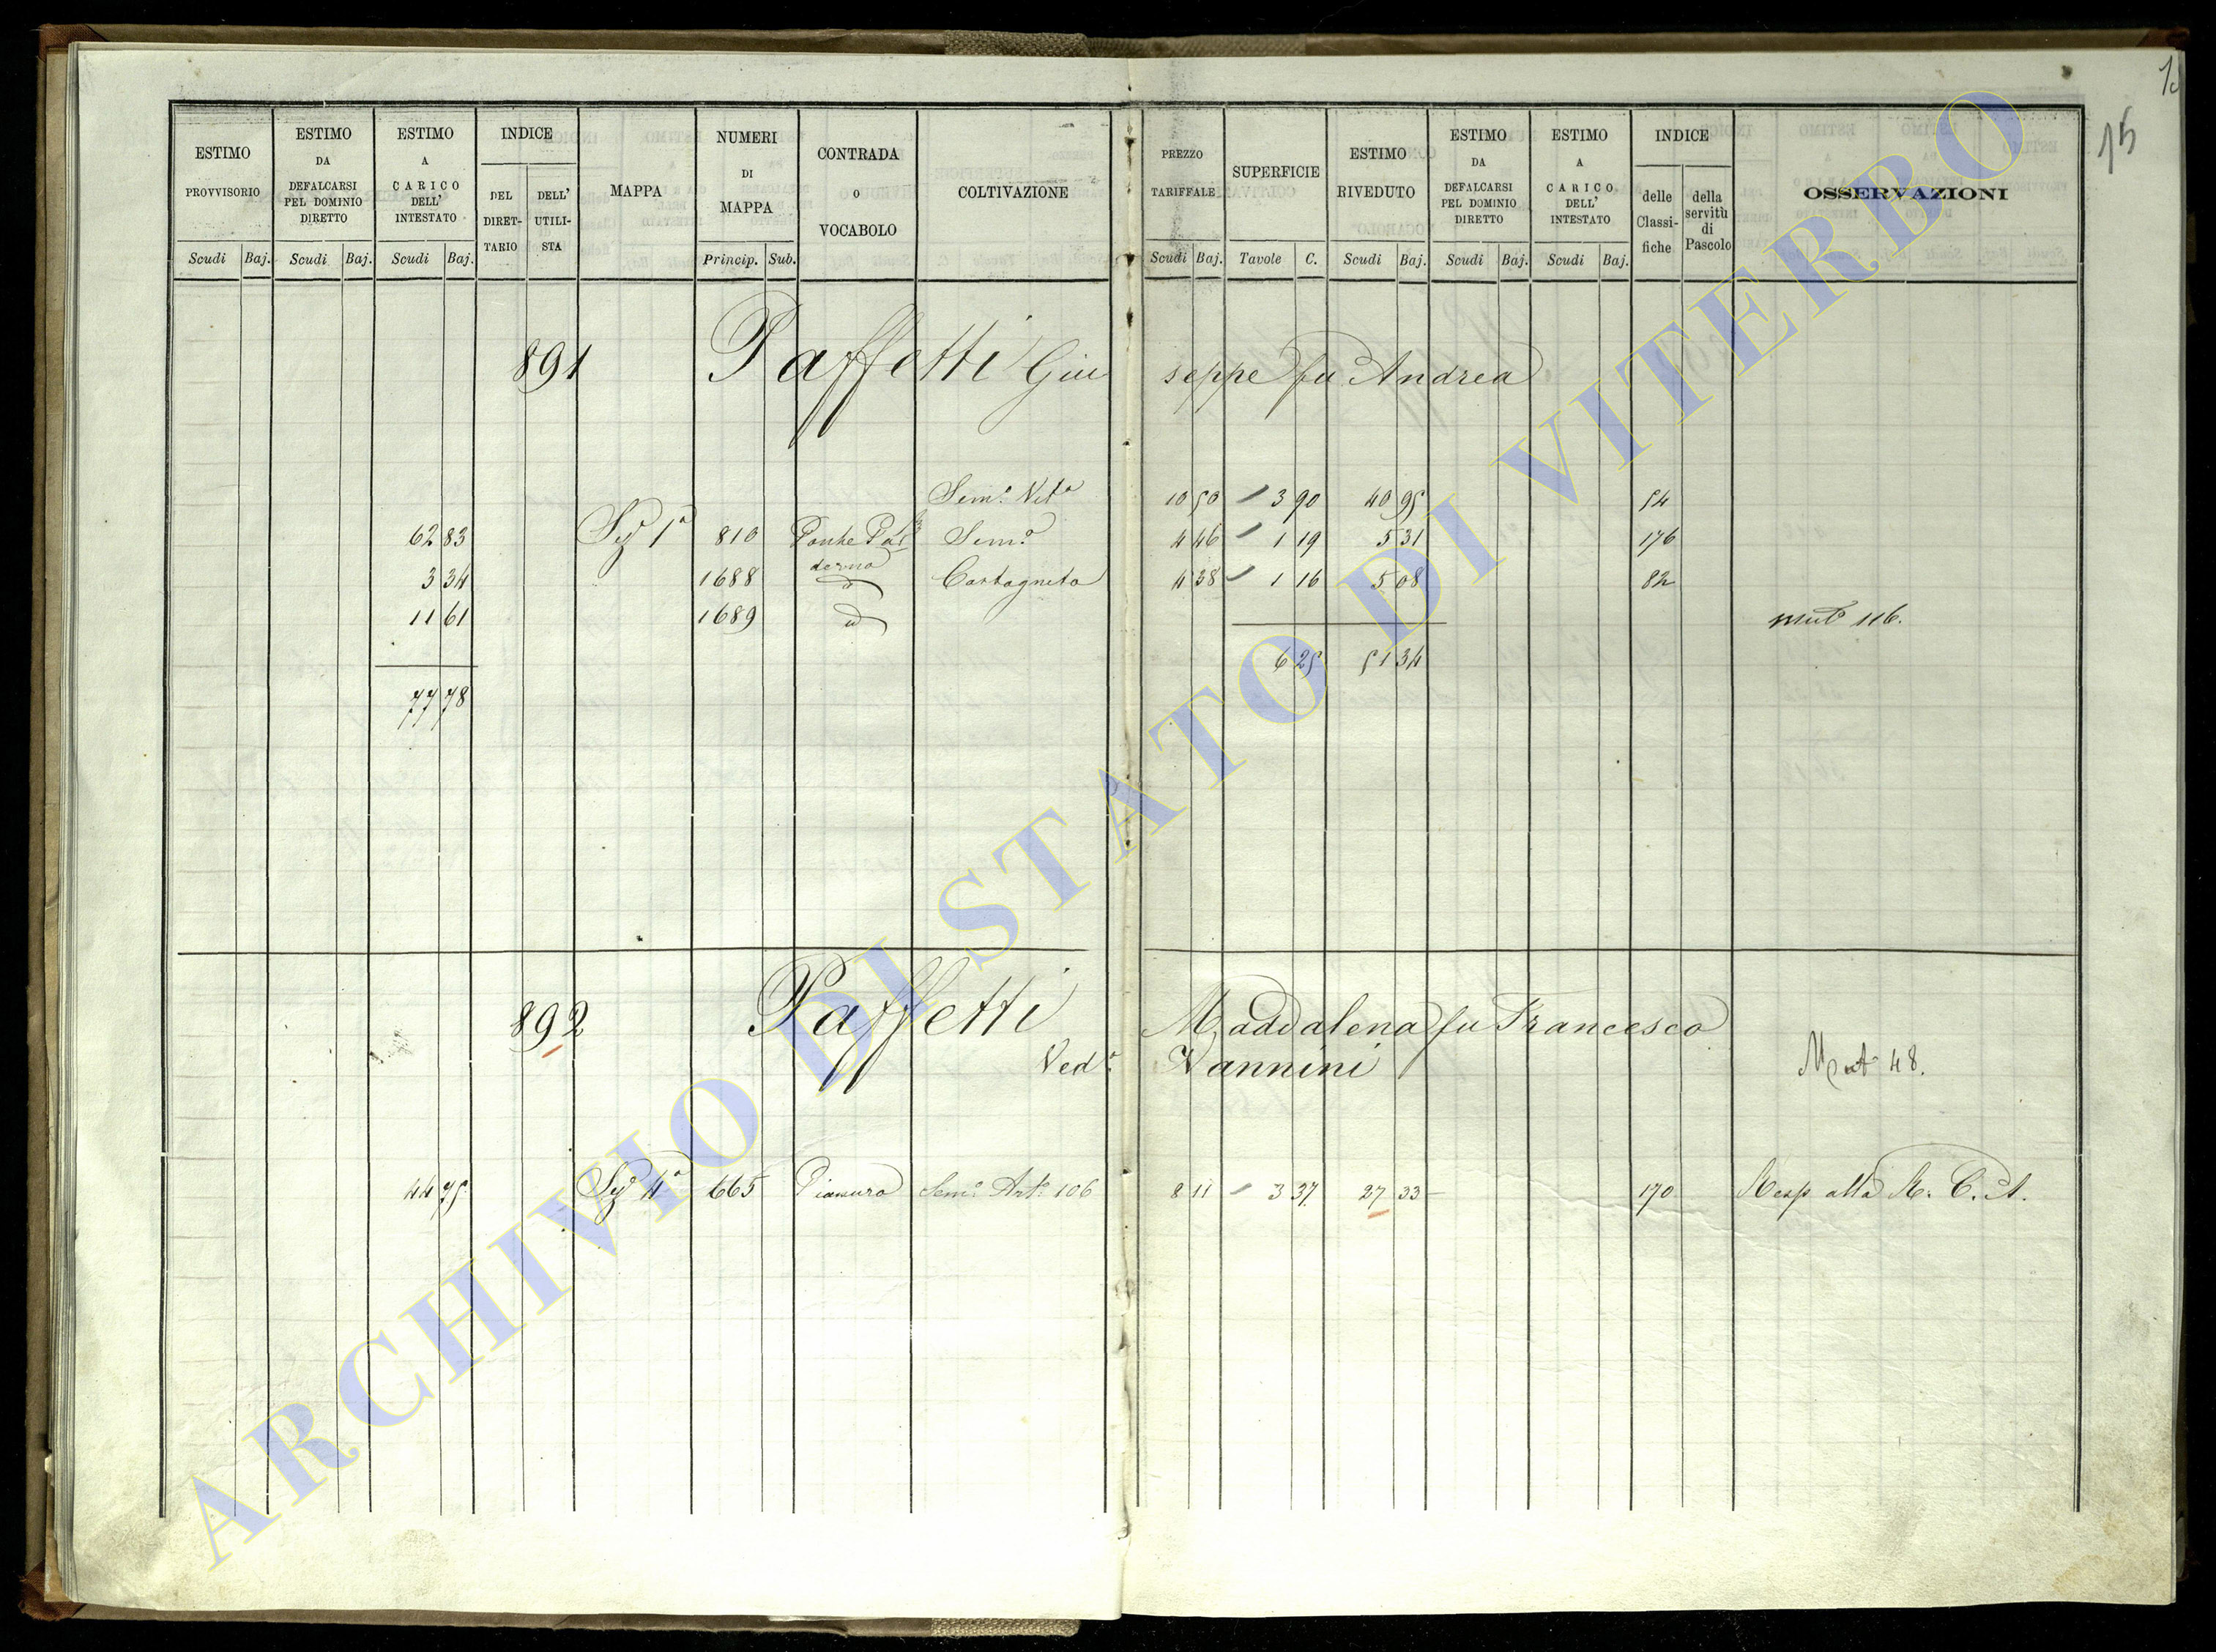 15
ESTIMO PROVVISORIO
ESTIMO DA DEFALCARSI PEL DOMINIO DIRETTO
ESTIMO A CARICO DELL' INTESTATO
INDICE
DEL DIRET-TARIO
DELL' UTILI-STA
MAPPA
NUMERI DI MAPPA
CONTRADA o VOCABOLO
COLTIVAZIONE
PREZZO TARIFFALE
SUPERFICIE
ESTIMO RIVEDUTO
ESTIMO DA DEFALCARSI PEL DOMINIO DIRETTO
ESTIMO A CARICO DELL' INTESTATO
INDICE
delle Classi-fiche
della servitù di Pascolo
OSSERVAZIONI
Scudi Baj. Scudi Baj. Scudi Baj. Princip. Sub. Scudi Baj. Tavole C. Scudi Baj. Scudi Baj. Scudi Baj.
891 Paffetti Giuseppe fu Andrea
Sem.o Vit.o 10 50 3 90 40 95 54
62 83 Sez.e 1a 810 Sem.o 4 46 1 19 5 31 176
3 34 1688 d Castagneto 4 38 1 16 5 08 82
11 61 1689 d mut 116.
6 25 51 34
77 78
892 Paffetti Maddalena fu Francesco
Ved.a Vannini
Mut 48.
44 75 Sez.e 4a 665 Pianura Sem.o Art.o 106 8 11 3 37 27 33 170 Resp alla R. C. A.
ARCHIVIO DI STATO DI VITERBO